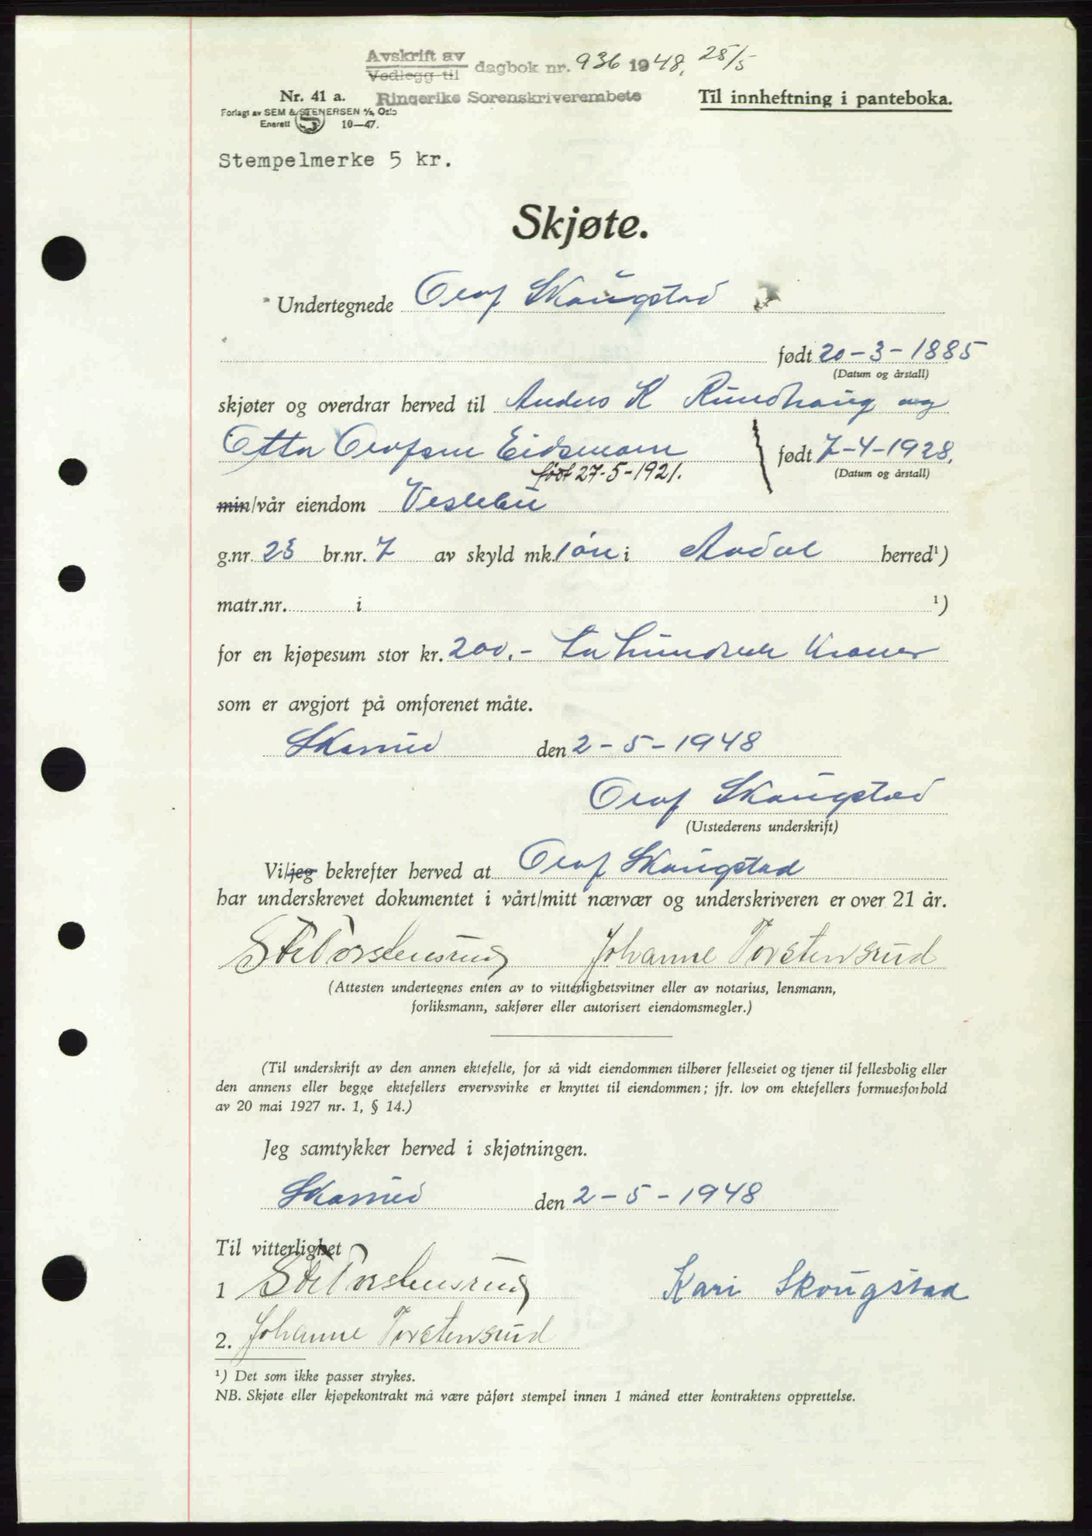 Avskrift av
Vedlegg til dagbok nr. 936 1948, 25/5
Ringerike Sorenskriverembete
Nr. 41 a.
Forlagt av SEM & STENERSEN A/S, Oslo
Enerett 10—47.
Til innheftning i panteboka.
Stempelmerke 5 kr.
Skjøte.
Undertegnede Olaf Skougstad
født 20-3-1885
(Datum og årstall)
skjøter og overdrar herved til Anders K Rundhaug og
Otto Olafsen Eidsmoen født 7-4-1928,
født 27-5-1921. (Datum og årstall)
min/vår eiendom Veslebu
g.nr. 23 br.nr. 7 av skyld mk. 1 øre i Aadal herred¹)
matr.nr. i ¹)
for en kjøpesum stor kr. 200.- to hundrede Kroner
som er avgjort på omforenet måte.
den 2-5-1948
Olaf Skougstad
(Utstederens underskrift)
Vi/jeg bekrefter herved at Olaf Skougstad
har underskrevet dokumentet i vårt/mitt nærvær og underskriveren er over 21 år.
Torstensrud Johanne Torstensrud
(Attesten undertegnes enten av to vitterlighetsvitner eller av notarius, lensmann,
forliksmann, sakfører eller autorisert eiendomsmegler.)
(Til underskrift av den annen ektefelle, for så vidt eiendommen tilhører felleseiet og tjener til fellesbolig eller
den annens eller begge ektefellers ervervsvirke er knyttet til eiendommen; jfr. lov om ektefellers formuesforhold
av 20 mai 1927 nr. 1, § 14.)
Jeg samtykker herved i skjøtningen.
den 2-5-1948
Til vitterlighet
1 Torstensrud Kari Skougstad
2. Johanne Torstensrud
¹) Det som ikke passer strykes.
NB. Skjøte eller kjøpekontrakt må være påført stempel innen 1 måned etter kontraktens opprettelse.